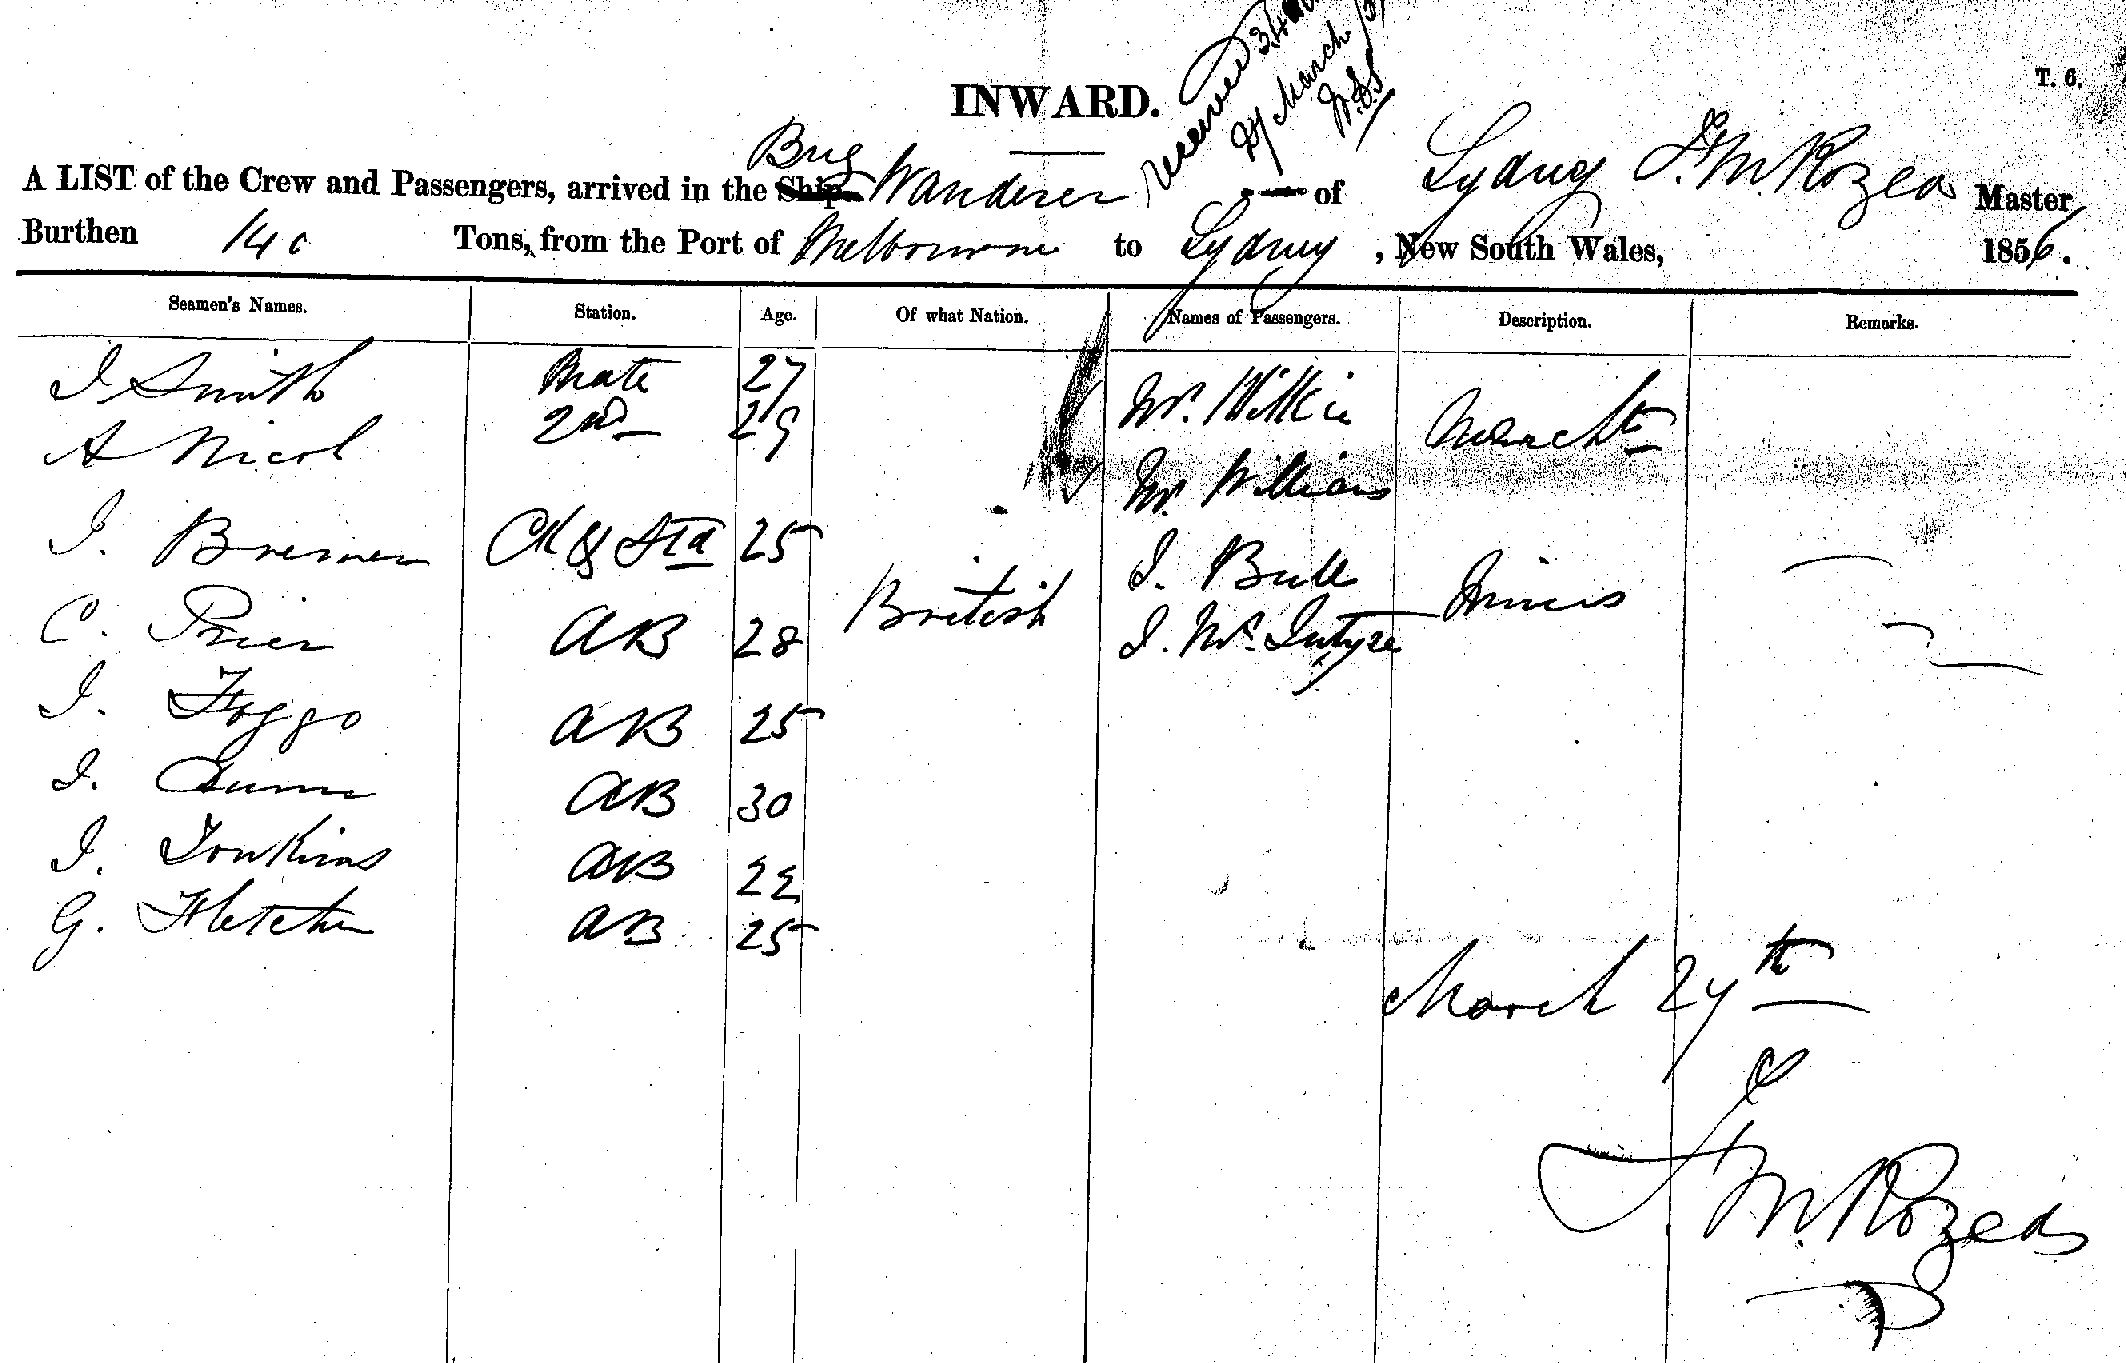 T. 6.
INWARD.
27 March
Brig
A LIST of the Crew and Passengers, arrived in the Ship Wanderer of Sydney F. M. Rozea Master
Burthen 140 Tons, from the Port of Melbourne to Sydney, New South Wales, 1856.
Seamen's Names. Station. Age. Of what Nation. Names of Passengers. Description. Remarks.
J Smith Mate 27 Mr. Wilkie
A Nicol 2nd 29 Merchts
Mr. Williams
J. Bremer Ck & Std 25 J. Bull
C. Prier AB 28 British J. McIntyre Miners
J. Foggo AB 25
J. Gunn AB 30
J. Tonkins AB 22
G. Fletcher AB 25
March 27th
F M. Rozea